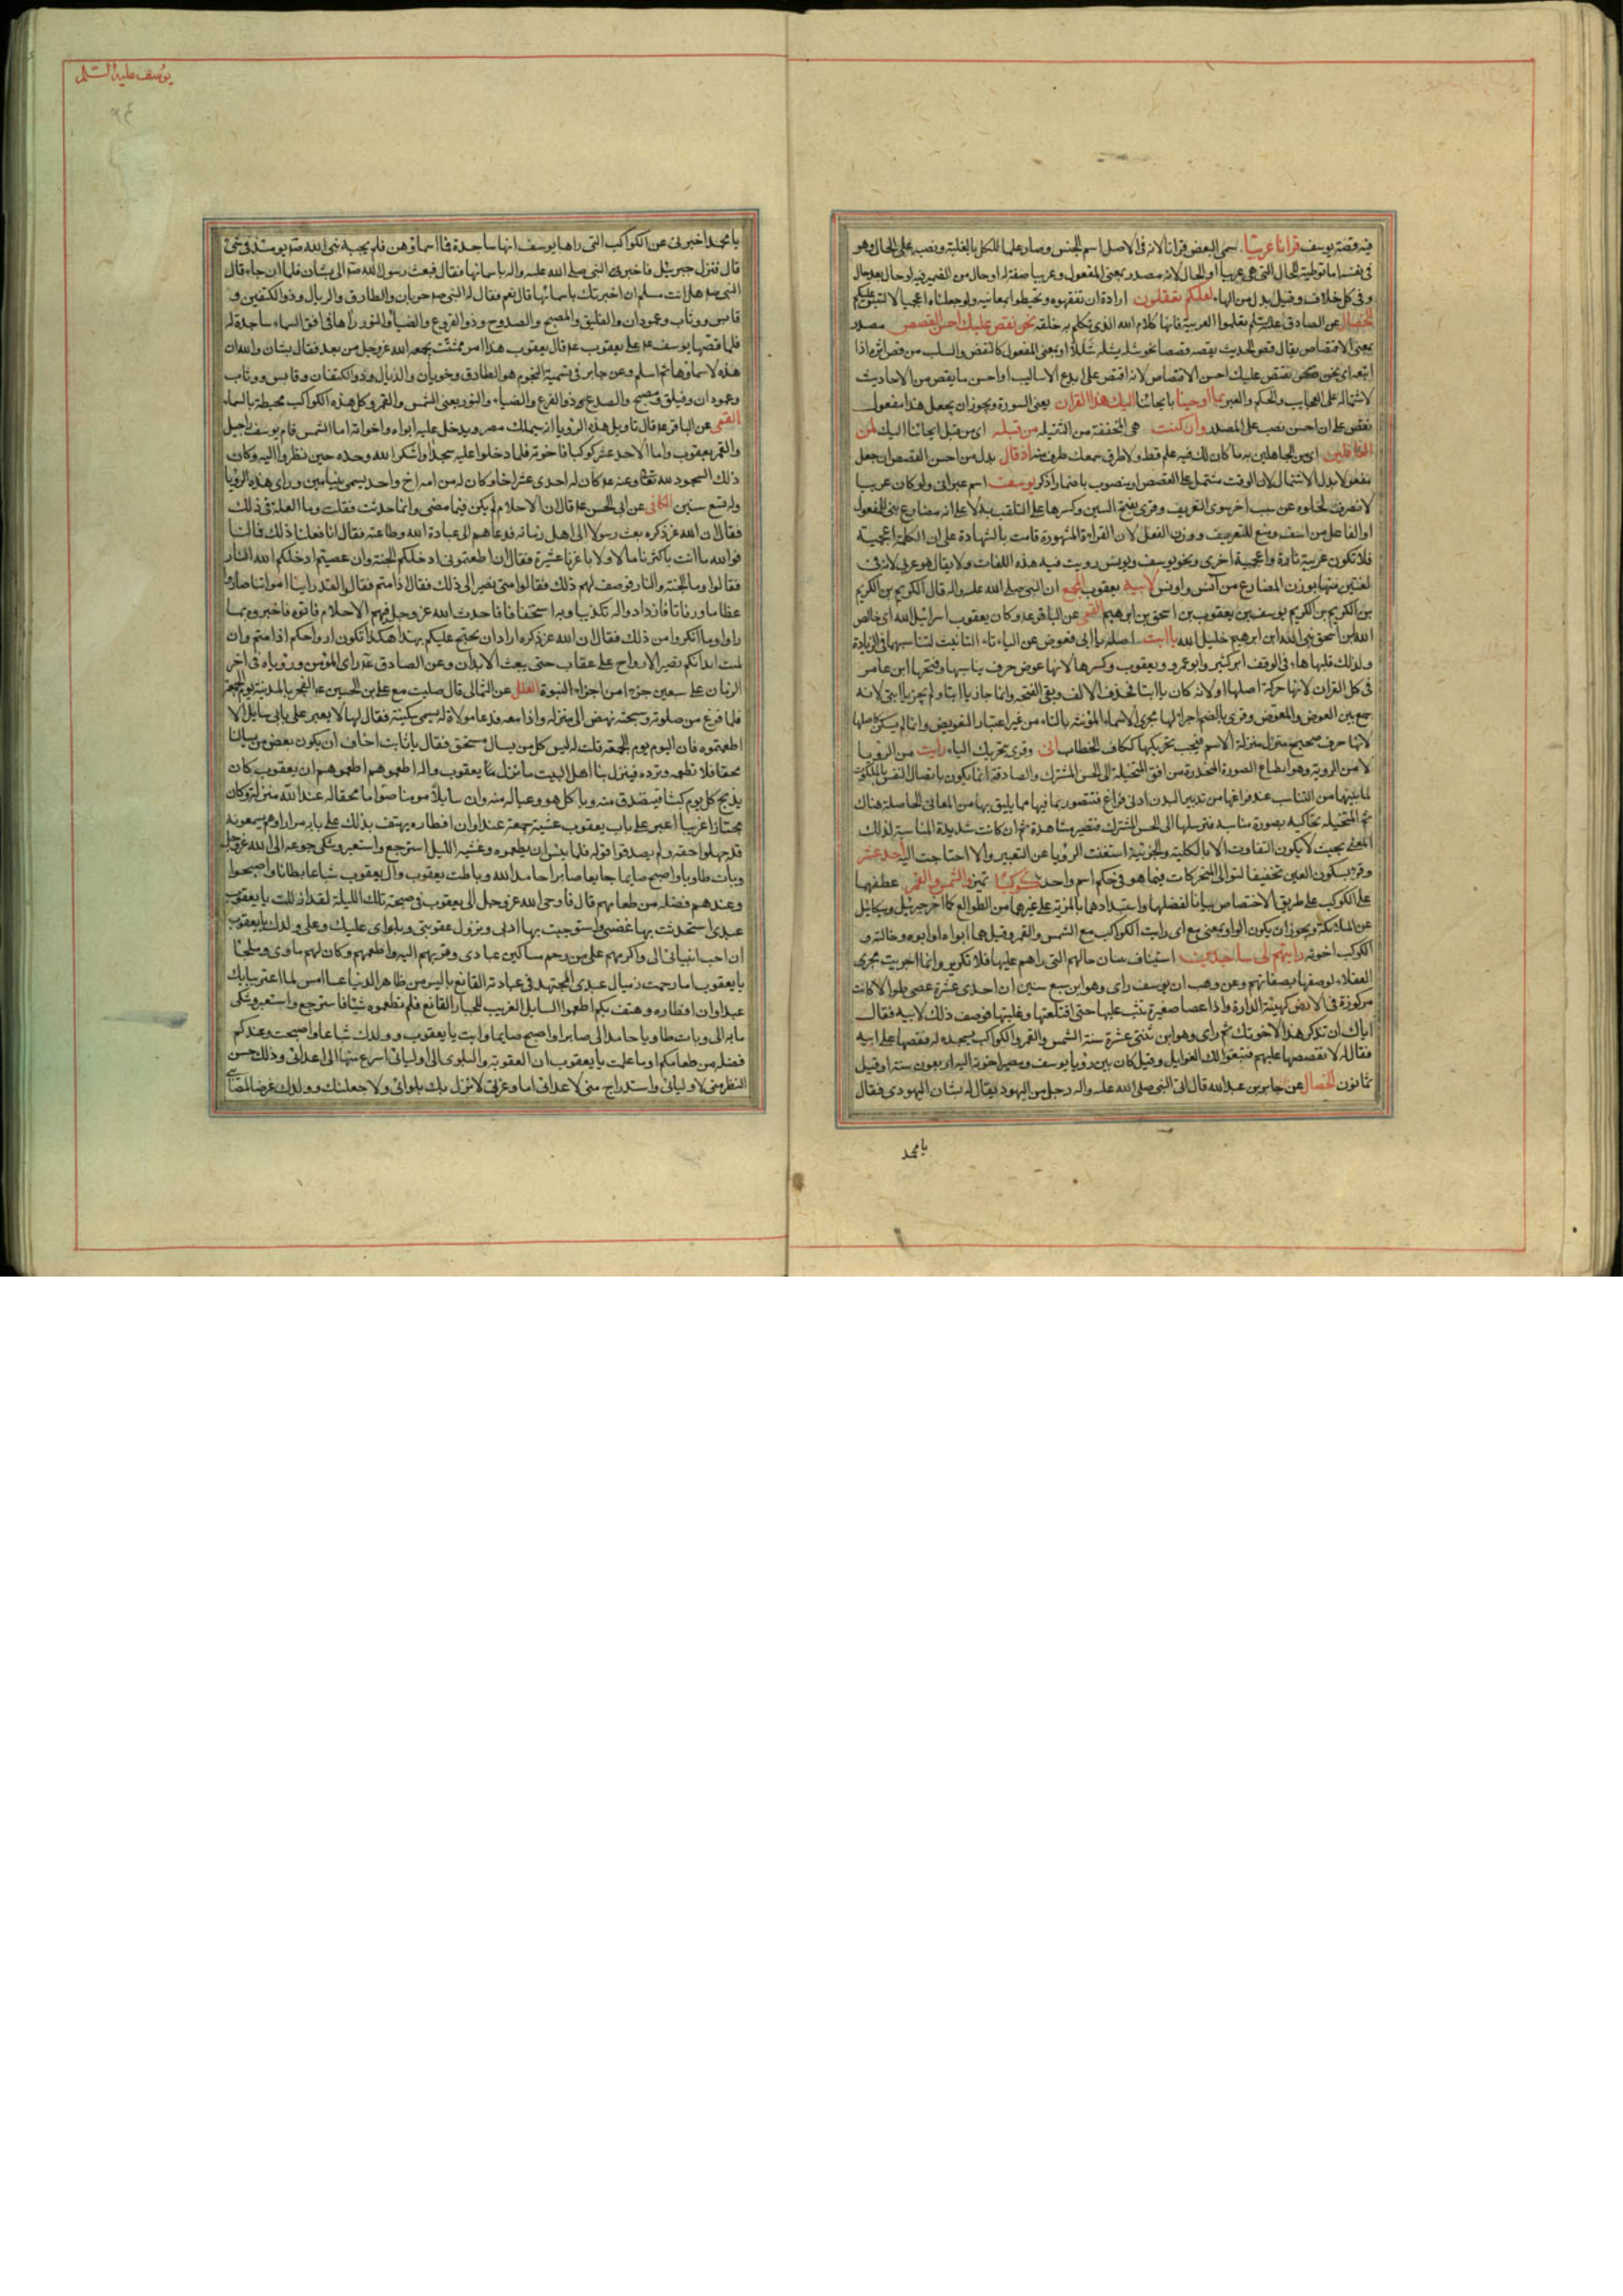 فيه قصة يوسف قرانا عربيا سمى البعض قرانا لانه فى الاصل اسم الجنس وصار علما للكل بالغلبة ونصبه على الحال وهو
فى نفسه اما توطئة للحال التى هى عربيا او الحال لانه مصدر بمعنى المفعول وعربيا صفة له او حال من الضمير فيه او حال بعد حال
وفى كل خلاف وقيل بدل من الهاء لعلكم تعقلون ارادة ان تفقهوه وتحيطوا بمعانيه ولو جعلناه اعجميا لالتبس عليكم
الخصال عن الصادق تعلموا العربية فانها كلام الله الذى تكلم به خلقه نحن نقص عليك احسن القصص مصدر
بمعنى الاقتصاص يقال قص الحديث يقصه قصصا نحو شله يشله شللا او بمعنى المفعول كالنقض والسلب من قص اثره اذا
اتبعه اى نحن نقص عليك احسن الاقتصاص لانه اقتص على ابدع الاساليب او احسن ما يقص من الاحاديث
لاشتماله على العجايب والحكم والعبر بما اوحينا بايحائنا اليك هذا القران يعنى السورة ويجوز ان يجعل هذا مفعول
نقص على ان احسن نصب على المصدر وان كنت هى المخففة من الثقيله من قبله اى من قبل ايحائنا اليك لمن
الغافلين اى من الجاهلين به ما كان لك فيه علم قط ولا طرق سمعك طرف منه اذ قال بدل من احسن القصص ان جعل
مفعولا بدل الاشتمال لان الوقت مشتمل على القصص او منصوب باضمار اذكر يوسف اسم عبرانى ولو كان عربيا
لانصرف لخلوه عن سبب اخر سوى التعريف وقرئ بفتح السين وكسرها على التلعب به لا على انه مضارع بنى للمفعول
او الفاعل من اسف ومنع للتعريف ووزن الفعل لان القراءة المشهورة قامت بالشهادة على ان الكلمة اعجمية
فلا تكون عربية تارة واعجمية اخرى ونحو يوسف ويونس رويت فيه هذه اللغات ولا يقال هو عربى لانه فى
لغتين منها بوزن المضارع من آنس واونس لابيه يعقوب المجمع ان النبى صلى الله عليه واله قال الكريم بن الكريم
بن الكريم بن الكريم يوسف بن يعقوب بن اسحق بن ابرهيم القمى عن الباقر وكان يعقوب اسرائيل الله اى خالص
الله ابن اسحق نبى الله ابن ابرهيم خليل الله يا ابت اصله يا ابى فعوض عن الياء تاء التانيث لتناسبهما فى الزيادة
ولذلك قلبها هاء فى الوقف ابن كثير وابو عمرو ويعقوب وكسرها لانها عوض حرف يناسبها وفتحها ابن عامر
فى كل القران لانها حركة اصلها او لانه كان يا ابتا فحذف الالف وبقى الفتحة وانما جاز يا ابتا ولم يجز يا ابتى لانه
جمع بين العوض والمعوض وقرئ بالضم اجراء لها مجرى الاسماء المؤنثه بالتاء من غير اعتبار التعويض وانما لم يسكن كاصلها
لانها حرف صحيح منزل منزلة الاسم فيجب تحريكها ككاف الخطاب انى وقرئ بتحريك الياء رايت من الرؤيا
لا من الروية وهو انطباع الصورة المنحدرة من افق المتخيلة الى الحس المشترك والصادقة انما يكون باتصال النفس بالملكوت
لما بينهما من التناسب عند فراغها من تدبير البدن ادنى فراغ فتتصور بما فيها مما يليق بها من المعانى الحاصلة هناك
ثم المتخيله تحاكيه بصورة مناسبه فترسلها الى الحس المشترك فتصير مشاهدة ثم ان كانت شديدة المناسبة لذلك
المعنى بحيث لا يكون التفاوت الا بالكلية والجزئية استغنت الرؤيا عن التعبير والا احتاجت اليه احد عشر
وقرئ بسكون العين تخفيفا لتوالى المتحركات فيما هو فى حكم اسم واحد كوكبا تميز والشمس والقمر عطفهما
على الكوكب على طريق الاختصاص بيانا لفضلهما واستبدادهما بالمزية على غيرهما من الطوالع كما اخر جبرئيل وميكائيل
عن الملائكة ويجوز ان يكون الواو بمعنى مع اى رايت الكواكب مع الشمس والقمر وقيل هما ابواه او ابوه وخالته و
الكوكب اخوته رايتهم لى ساجدين استيناف بيان حالهم التى راهم عليها فلا تكرير وانما اجريت مجرى
العقلاء لوصفها بصفاتهم وعن وهب ان يوسف راى وهو ابن سبع سنين ان احدى عشرة عصى طوالا كانت
مركوزة فى الارض كهيئة الدارة واذا عصا صغيرة تثب عليها حتى اقتلعتها وغلبتها فوصف ذلك لابيه فقال
اياك ان تذكر هذا لاخوتك ثم راى وهو ابن ثنتى عشرة سنة الشمس والقمر والكواكب يسجد له فقصها على ابيه
فقال له لا تقصصها عليهم فتبغوا لك الغوايل وقيل كان بين رؤيا يوسف ومصير اخوته اليه اربعون سنة او قيل
ثمانون الخصال عن جابر بن عبد الله قال اتى النبى صلى الله عليه واله رجل من اليهود يقال له بشان اليهودى فقال
يا محمد
يوسف عليه السلم
٩٤
يا محمد اخبرنى عن الكواكب التى راها يوسف انها ساجدة فما اسماؤهن فلم يجبه نبى الله يومئذ فى شئ
قال فنزل جبرئيل فاخبر النبى صلى الله عليه واله باسمائها فقال فبعث رسول الله الى بشان فلما ان جاء قال
النبى هل انت مسلم ان اخبرتك باسمائها قال نعم فقال له النبى حربان والطارق والذيال وذو الكتفين و
قابس ووثاب وعمودان والفليق والمصبح والصدوح وذو القروع والضياء والنور راها فى افق السماء ساجدة له
فلما قصها يوسف على يعقوب قال يعقوب هذا امر متشتت يجمعه الله عز وجل من بعد فقال بشان والله ان
هذه لاسماؤها ثم اسلم وعن جابر فى تسمية النجوم هو الطارق وحوبان والذيال وذو الكتفان وقابس ووثاب
وعمودان وفيلق ومصبح والصدع وذو القرع والضياء والنور يعنى الشمس والقمر وكل هذه الكواكب محيطة بالسماء
القمى عن الباقر قال تاويل هذه الرؤيا انه سيملك مصر ويدخل عليه ابواه واخوته اما الشمس فام يوسف راحيل
والقمر يعقوب واما الاحد عشر كوكبا فاخوته فلما دخلوا عليه سجدوا شكرا لله وحده حين نظروا اليه وكان
ذلك السجود لله تعالى وعنه كان له احدى عشر اخا وكان له من امه اخ واحد يسمى بنيامين وراى هذه الرؤيا
وله تسع سنين الكافى عن ابى الحسن قال ان الاحلام لم يكن فيما مضى وانما حدثت فقلت وما العلة فى ذلك
فقال ان الله عز ذكره بعث رسولا الى اهل زمانه فدعاهم الى عبادة الله وطاعته فقال انا فعلنا ذلك فما لنا
فوالله ما انت باكثرنا مالا ولا باعزنا عشيرة فقال ان اطعتمونى ادخلكم الجنة وان عصيتم ادخلكم الله النار
فقالوا وما الجنة والنار فوصف لهم ذلك فقالوا متى نصير الى ذلك فقال اذا متم فقالوا لقد راينا امواتنا صاروا
عظاما ورفاتا فازدادوا له تكذيبا وبه استخفافا فاحدث الله عز وجل فيهم الاحلام فاتوه فاخبروه بما
راوا وما انكروا من ذلك فقال ان الله عز ذكره اراد ان يحتج عليكم بهذا هكذا تكون ارواحكم اذا متم وان
بليت ابدانكم تصير الارواح على عقاب حتى يبعث الابدان وعن الصادق راى المؤمن ورؤياه فى اخر
الزمان على سبعين جزءا من اجزاء النبوة العلل عن الثمالى قال صليت مع على بن الحسين الفجر بالمدينة يوم الجمعة
فلما فرغ من صلوته وسبحته نهض الى منزله وانا معه فدعا مولاة له يسمى سكينة فقال لها لا يعبر على بابى سايل الا
اطعمتموه فان اليوم يوم الجمعة قلت له ليس كل من يسال مستحق فقال يا ثابت اخاف ان يكون بعض من يسالنا
محقا فلا نطعمه ونرده فينزل بنا اهل البيت ما نزل بيعقوب واله اطعموهم اطعموهم ان يعقوب كان
يذبح كل يوم كبشا فيتصدق منه وياكل هو وعياله منه وان سايلا مومنا صواما محقا له عند الله منزلة وكان
مجتازا غريبا اعبر على باب يعقوب عشية جمعة عند اوان افطاره يهتف بذلك على بابه مرارا وهم يسمعونه
قد جهلوا حقه ولم يصدقوا قوله فلما يئس ان يطعموه وغشيه الليل استرجع واستعبر وشكى جوعه الى الله عز وجل
وبات طاويا واصبح صايما جايعا صابرا حامدا لله وبات يعقوب وال يعقوب شباعا بطانا واصبحوا
وعندهم فضله من طعامهم قال فاوحى الله عز وجل الى يعقوب فى صبيحة تلك الليلة لقد اذللت يا يعقوب
عبدى استجذبت بها غضبى واستوجبت بها ادبى ونزول عقوبتى وبلواى عليك وعلى ولدك يا يعقوب
ان احب انبيائى الى واكرمهم على من رحم مساكين عبادى وقربهم اليه واطعمهم وكان لهم ماوى وملجئا
يا يعقوب اما رحمت ذميال عبدى المجتهد فى عبادته القانع باليسير من ظاهر الدنيا عشا امس لما اعتر ببابك
عند اوان افطاره وهتف بكم اطعموا السايل الغريب المجتاز القانع فلم تطعموه شيئا فاسترجع واستعبر وشكى
ما به الى وبات طاويا حامدا الى صابرا واصبح صايما وانت يا يعقوب وولدك شباعا واصبحت وعندكم
فضله من طعامكم او ما علمت يا يعقوب ان العقوبة والبلوى الى اوليائى اسرع منها الى اعدائى وذلك حسن
النظر منى لاوليائى واستدراج منى لاعدائى اما وعزتى لانزل بك بلوائى ولاجعلنك وولدك غرضا لمصايبى